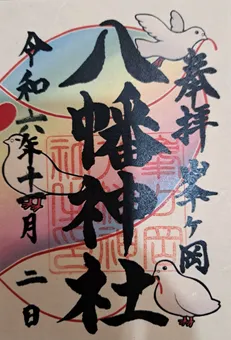 奉拝 峯ヶ岡
八幡神社
令和六年十月二日